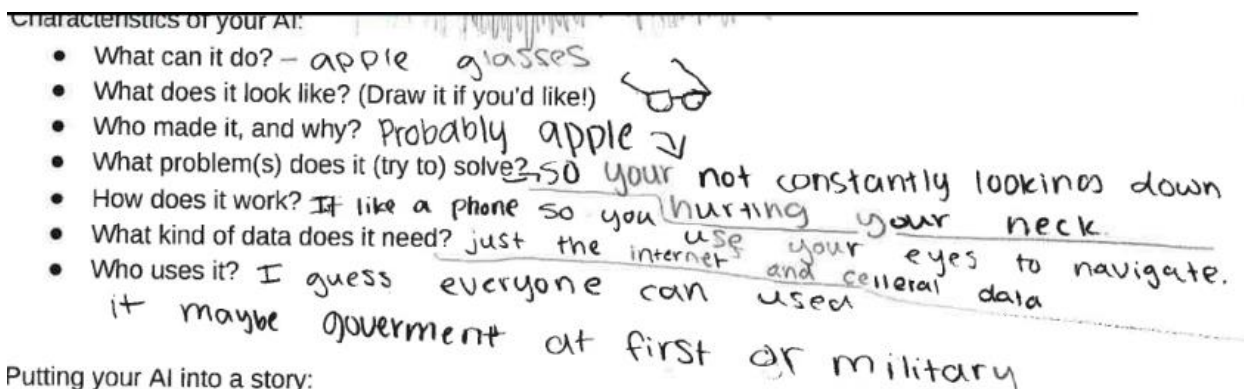 Characteristics of your AI:
• What can it do? – apple glasses
• What does it look like? (Draw it if you'd like!)
• Who made it, and why? Probably apple
• What problem(s) does it (try to) solve? so your not constantly lookings down
hurting your neck.
• How does it work? It like a phone so you use your eyes to navigate.
• What kind of data does it need? just the internet and celleral data
• Who uses it? I guess everyone can used
it maybe goverment at first or military
Putting your AI into a story: